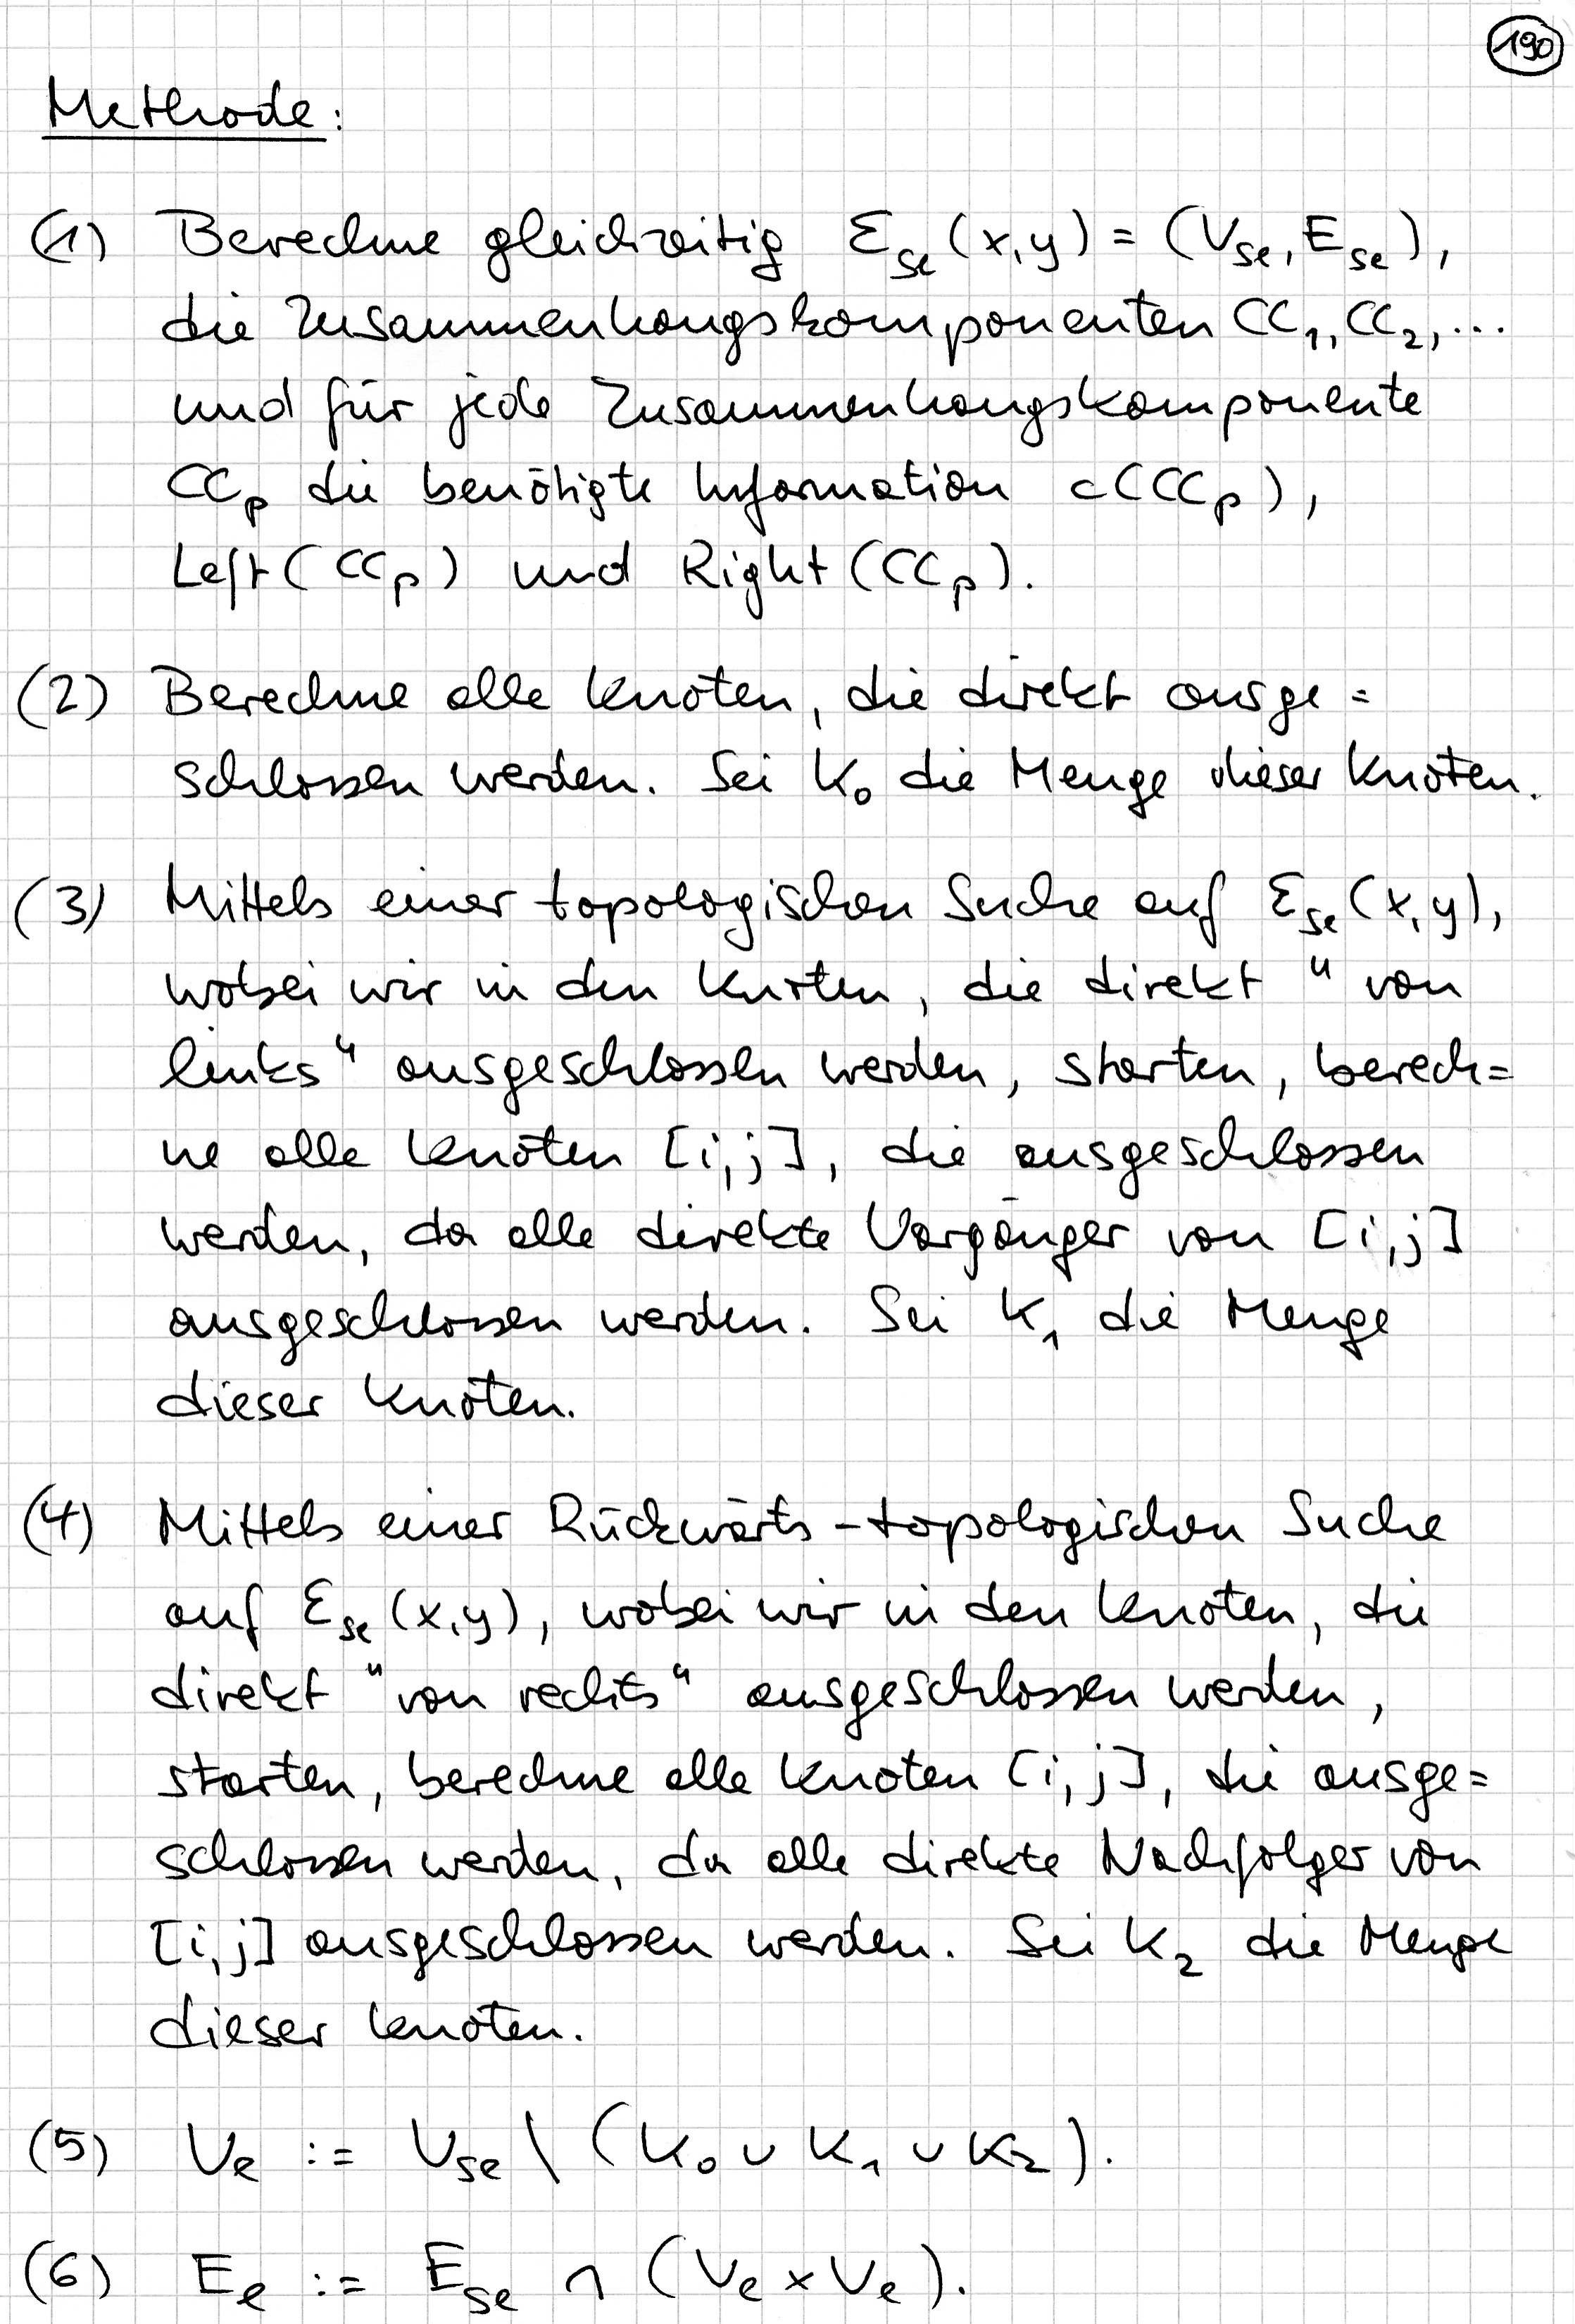 190
Methode:
(1) Berechne gleichzeitig Ɛ_se(x,y) = (V_se, E_se),
die Zusammenhangskomponenten CC_1, CC_2, ...
und für jede Zusammenhangskomponente
CC_p die benötigte Information c(CC_p),
Left(CC_p) und Right(CC_p).
(2) Berechne alle Knoten, die direkt ausge=
schlossen werden. Sei K_0 die Menge dieser Knoten.
(3) Mittels einer topologischen Suche auf Ɛ_se(x,y),
wobei wir in den Knoten, die direkt "von
links" ausgeschlossen werden, starten, berech=
ne alle Knoten [i,j], die ausgeschlossen
werden, da alle direkte Vorgänger von [i,j]
ausgeschlossen werden. Sei K_1 die Menge
dieser Knoten.
(4) Mittels einer Rückwärts-topologischen Suche
auf Ɛ_se(x,y), wobei wir in den Knoten, die
direkt "von rechts" ausgeschlossen werden,
starten, berechne alle Knoten [i,j], die ausge=
schlossen werden, da alle direkte Nachfolger von
[i,j] ausgeschlossen werden. Sei K_2 die Menge
dieser Knoten.
(5) V_e := V_se \ (K_0 ∪ K_1 ∪ K_2).
(6) E_e := E_se ∩ (V_e × V_e).